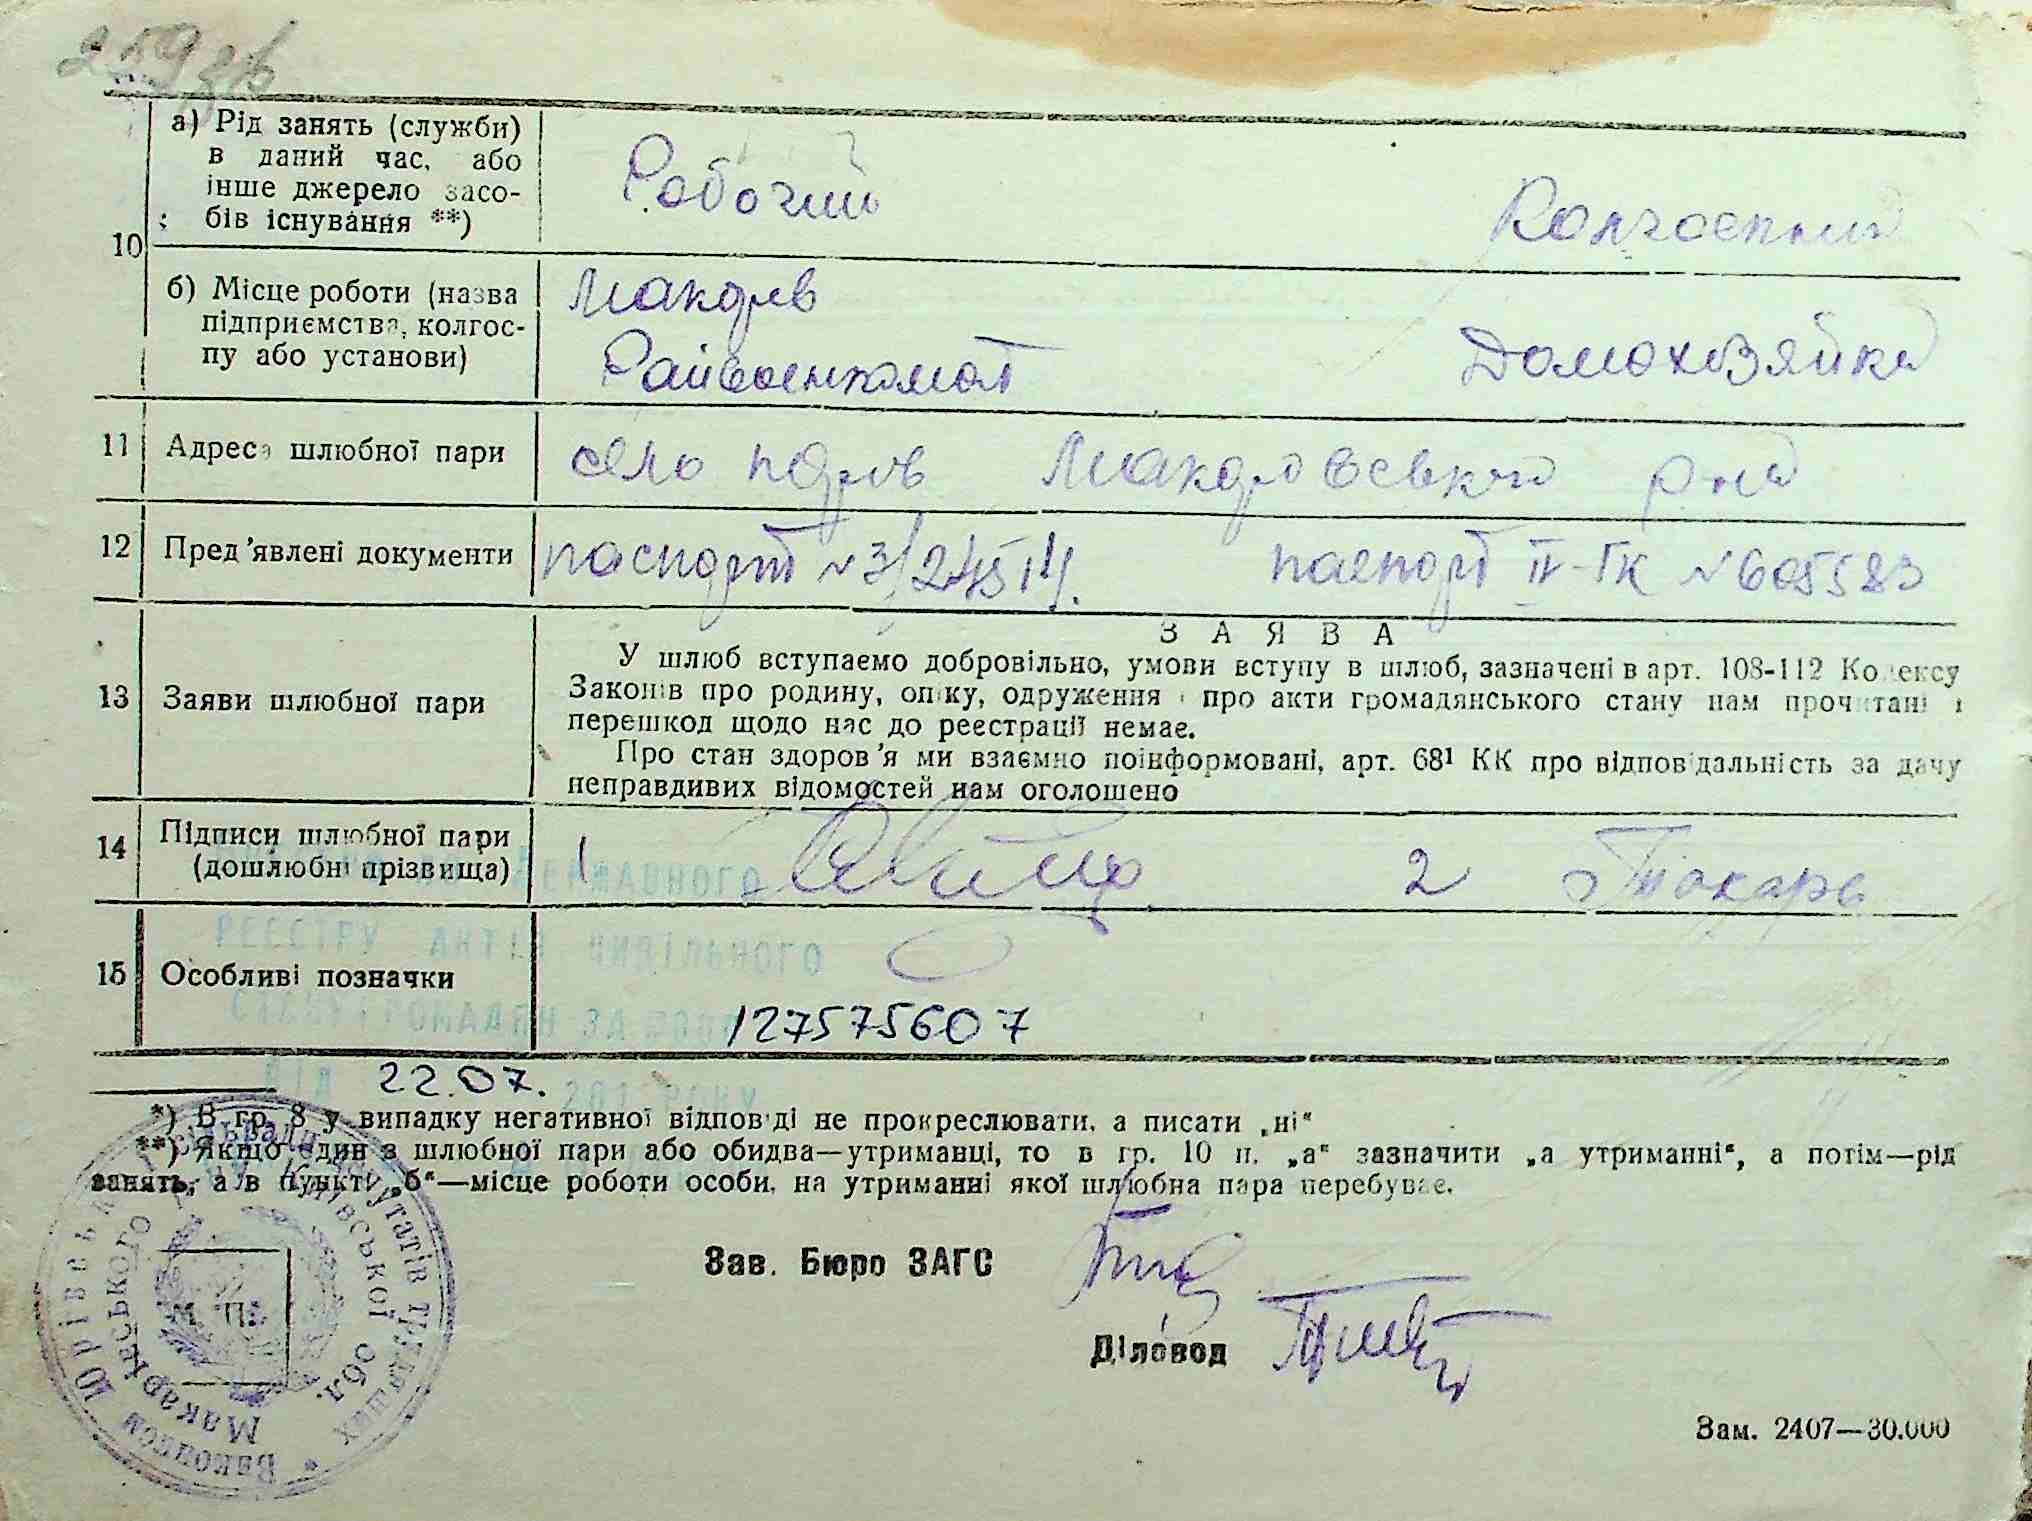 259зв
а) Рід занять (служби)
в даний час, або
інше джерело засо-
бів існування **)
Робочий
Колгоспниця
10
б) Місце роботи (назва
підприємства, колгос-
пу або установи)
Макарів
Райвоенкомат
Домохозяйка
11 Адреса шлюбної пари
село Юрів Макарівського р-на
12 Пред'явлені документи
паспорт № паспорт IV-ГК № 605583
ЗАЯВА
13 Заяви шлюбної пари
У шлюб вступаємо добровільно, умови вступу в шлюб, зазначені в арт. 108-112 Кодексу
Законів про родину, опіку, одруження і про акти громадянського стану нам прочитані і
перешкод щодо нас до реестрації немає.
Про стан здоров'я ми взаємно поінформовані, арт. 68¹ КК про відповідальність за дачу
неправдивих відомостей нам оголошено
14 Підписи шлюбної пари
(дошлюбні прізвища)
1 2 Токарь
ДЕРЖАВНОГО
РЕЄСТРУ АКТІВ ЦИВІЛЬНОГО
СТАНУ ГРОМАДЯН ЗА
15 Особливі позначки
127575607
ВІД 22.07. 201 РОКУ
*) В гр. 8 у випадку негативної відповіді не прокреслювати, а писати „ні“
**) Якщо один з шлюбної пари або обидва—утриманці, то в гр. 10 п. „а“ зазначити „а утриманні“, а потім—рід
занять, а в пункті „б“—місце роботи особи, на утриманні якої шлюбна пара перебуває.
Зав. Бюро ЗАГС
Діловод
М. П.
Виконком Юрівськ сільради депутатів трудящих
Макарівського Київської обл.
Зам. 2407—30.000